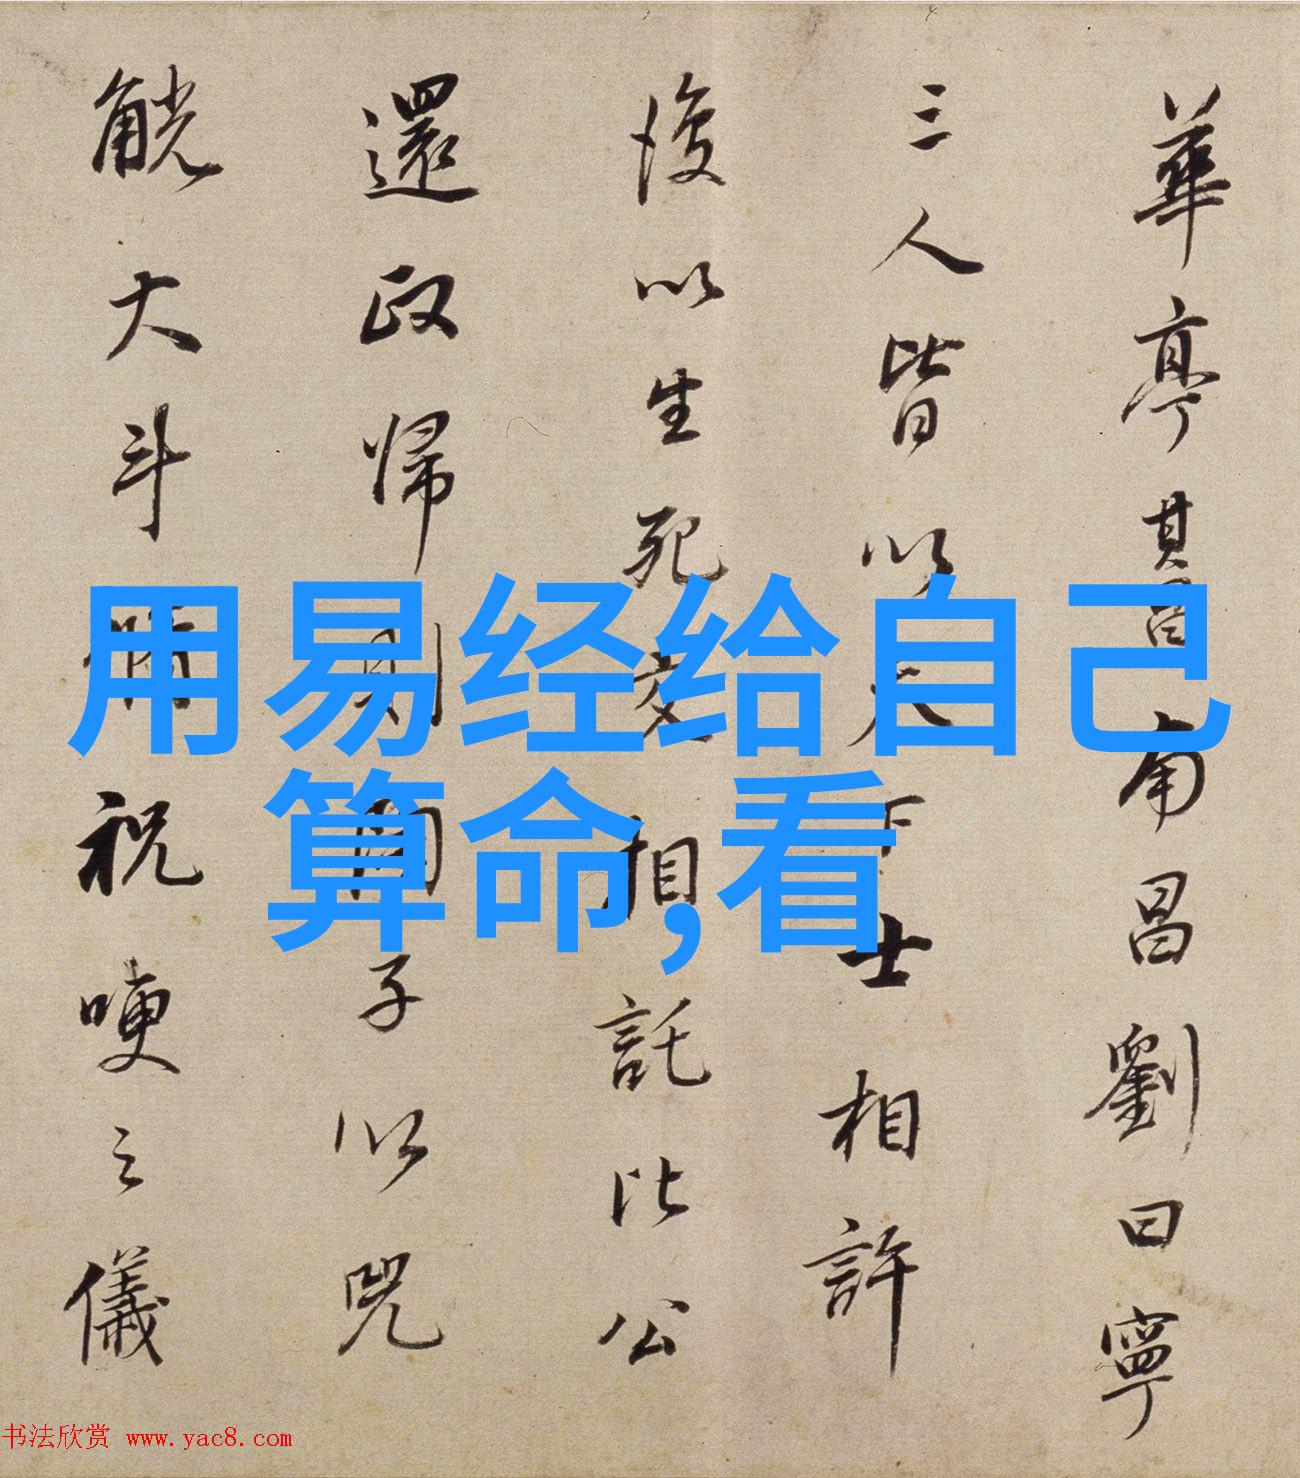 用易经给自己
算命,看
華亭其昌南昌劉曰寧
三人皆以天下士相許
後以生死交相託比公
還政歸則子以兕
觥大斗祝哽之儀
书法欣赏 www.yac8.com